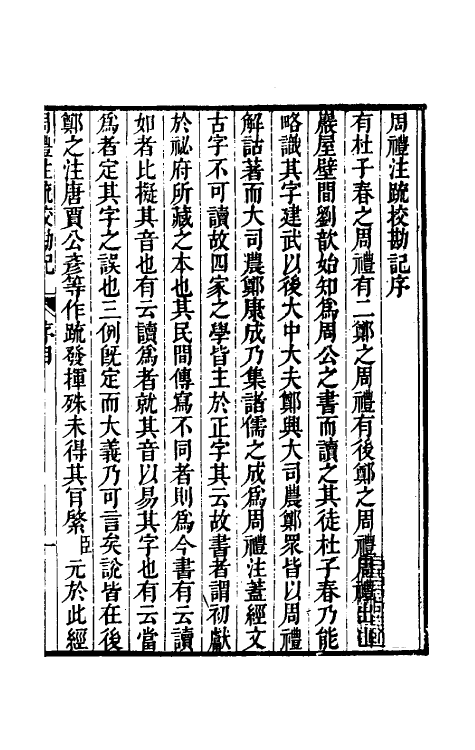 周禮注疏挍勘記序
有杜子春之周禮有二鄭之周禮有後鄭之周禮周禮出山
巖屋壁間劉歆始知為周公之書而讀之其徒杜子春乃能
略識其字建武以後大中大夫鄭興大司農鄭眾皆以周禮
解詁著而大司農鄭康成乃集諸儒之成為周禮注蓋經文
古字不可讀故四家之學皆主於正字其云故書者謂初獻
於祕府所藏之本也其民間傳寫不同者則為今書有云讀
如者比擬其音也有云讀為者就其音以易其字也有云當
為者定其字之誤也三例既定而大義乃可言矣說皆在後
鄭之注唐賈公彥等作疏發揮殊未得其肎綮臣元於此經
周禮注疏挍勘記 序目 一